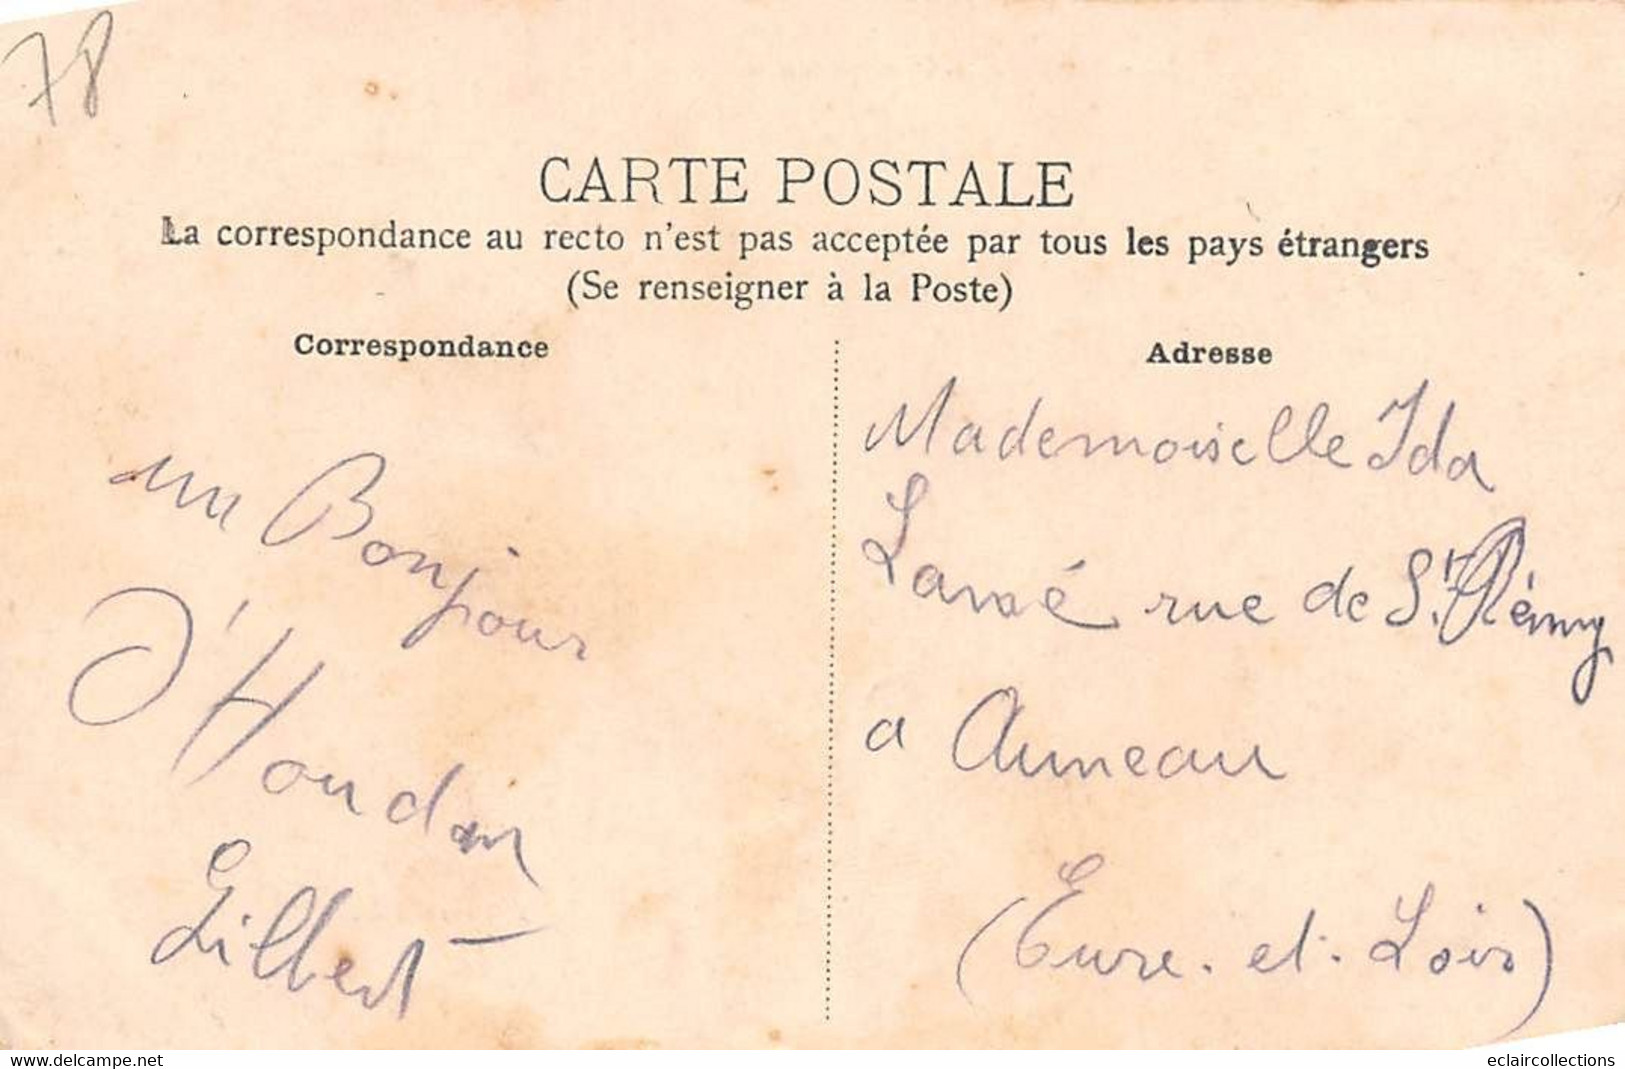 78
CARTE POSTALE
La correspondance au recto n'est pas acceptée par tous les pays étrangers
(Se renseigner à la Poste)
Correspondance
un Bonjour
d'Houdan
Gilbert
Adresse
Mademoiselle Ida
rue de St Rémy
a Auneau
(Eure-et-Loir)
www.delcampe.net
eclaircollections